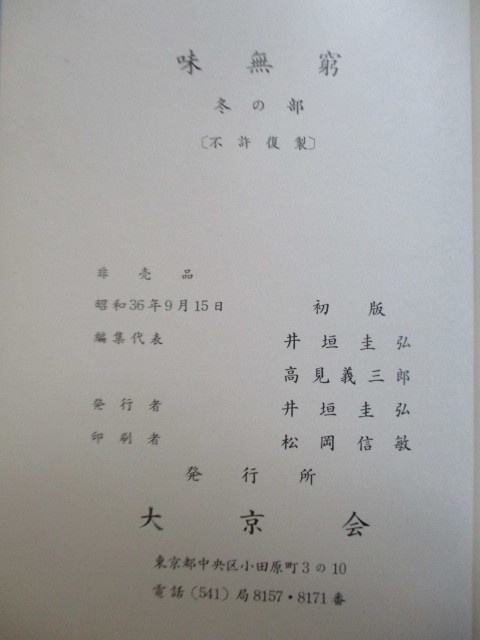 味無窮
冬の部
〔不許復製〕
非売品
昭和36年9月15日 初版
編集代表 井垣圭弘
高見義三郎
発行者 井垣圭弘
印刷者 松岡信敏
発行所
大京会
東京都中央区小田原町3の10
電話(541)局8157・8171番